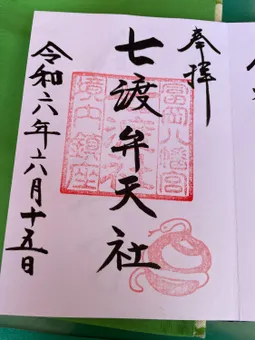 奉拝
七渡弁天社
令和六年六月十五日
富岡八幡宮
境内鎮座